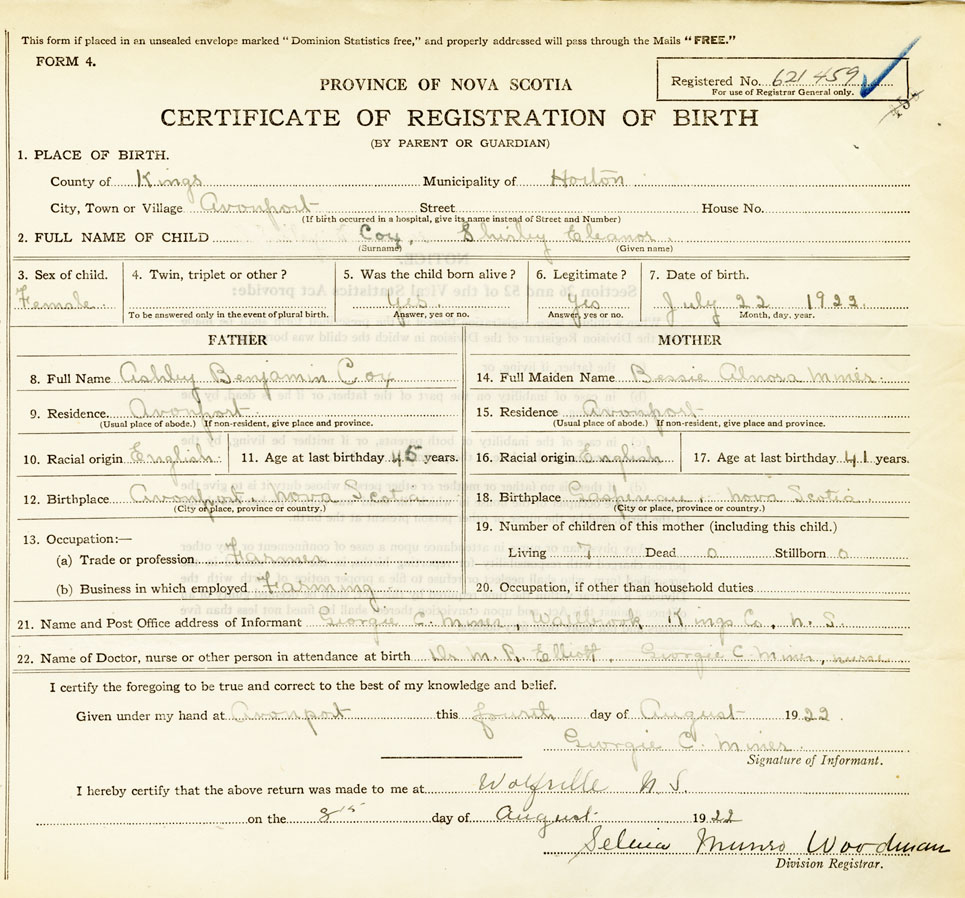 This form if placed in an unsealed envelope marked "Dominion Statistics free," and properly addressed will pass through the Mails "FREE."
FORM 4.
Registered No. 621459
For use of Registrar General only.
PROVINCE OF NOVA SCOTIA
CERTIFICATE OF REGISTRATION OF BIRTH
(BY PARENT OR GUARDIAN)
1. PLACE OF BIRTH.
County of Kings Municipality of Horton
City, Town or Village Avonport Street House No.
(If birth occurred in a hospital, give its name instead of Street and Number)
2. FULL NAME OF CHILD Cox, Shirley Eleanor.
(Surname) (Given name)
3. Sex of child. 4. Twin, triplet or other? 5. Was the child born alive? 6. Legitimate? 7. Date of birth.
Female. Yes. Yes July 22 1922.
To be answered only in the event of plural birth. Answer, yes or no. Answer, yes or no. Month, day, year.
FATHER MOTHER
8. Full Name Ashley Benjamin Cox 14. Full Maiden Name Bessie Alnora Miner.
9. Residence. Avonport. 15. Residence Avonport
(Usual place of abode.) If non-resident, give place and province. (Usual place of abode.) If non-resident, give place and province.
10. Racial origin English. 11. Age at last birthday 45 years. 16. Racial origin English 17. Age at last birthday 41 years.
12. Birthplace Avonport, Nova Scotia 18. Birthplace Gaspereau, Nova Scotia.
(City or place, province or country.) (City or place, province or country.)
13. Occupation:— 19. Number of children of this mother (including this child.)
(a) Trade or profession Farmer Living 7 Dead 0 Stillborn 0
(b) Business in which employed Farming. 20. Occupation, if other than household duties
21. Name and Post Office address of Informant Georgie C. Miner, Wallbrook Kings Co, N. S.
22. Name of Doctor, nurse or other person in attendance at birth Dr M. R. Elliott, Georgie C. Miner, nurse
I certify the foregoing to be true and correct to the best of my knowledge and belief.
Given under my hand at Avonport this fourth day of August 1922.
Georgie C. Miner.
Signature of Informant.
I hereby certify that the above return was made to me at Wolfville N. S.
on the day of August 1922
Selina Munro Woodman
Division Registrar.